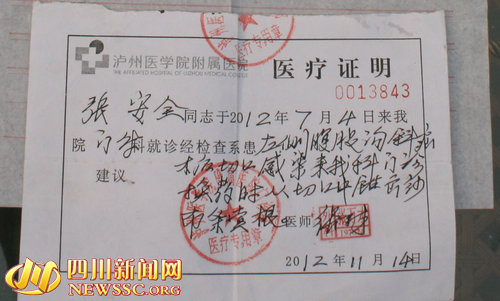 医疗专用章
泸州医学院附属医院
THE AFFILIATED HOSPITAL OF LUZHOU MEDICAL COLLEGE
医疗证明
0013843
张安全同志于2012年7月4日来我
院门诊就诊经检查系患左侧腹股沟斜疝
术后切口感染来我科门诊
建议
换药时从切口中
医师
医疗专用章
2012年11月14日
四川新闻网
NEWSSC.ORG